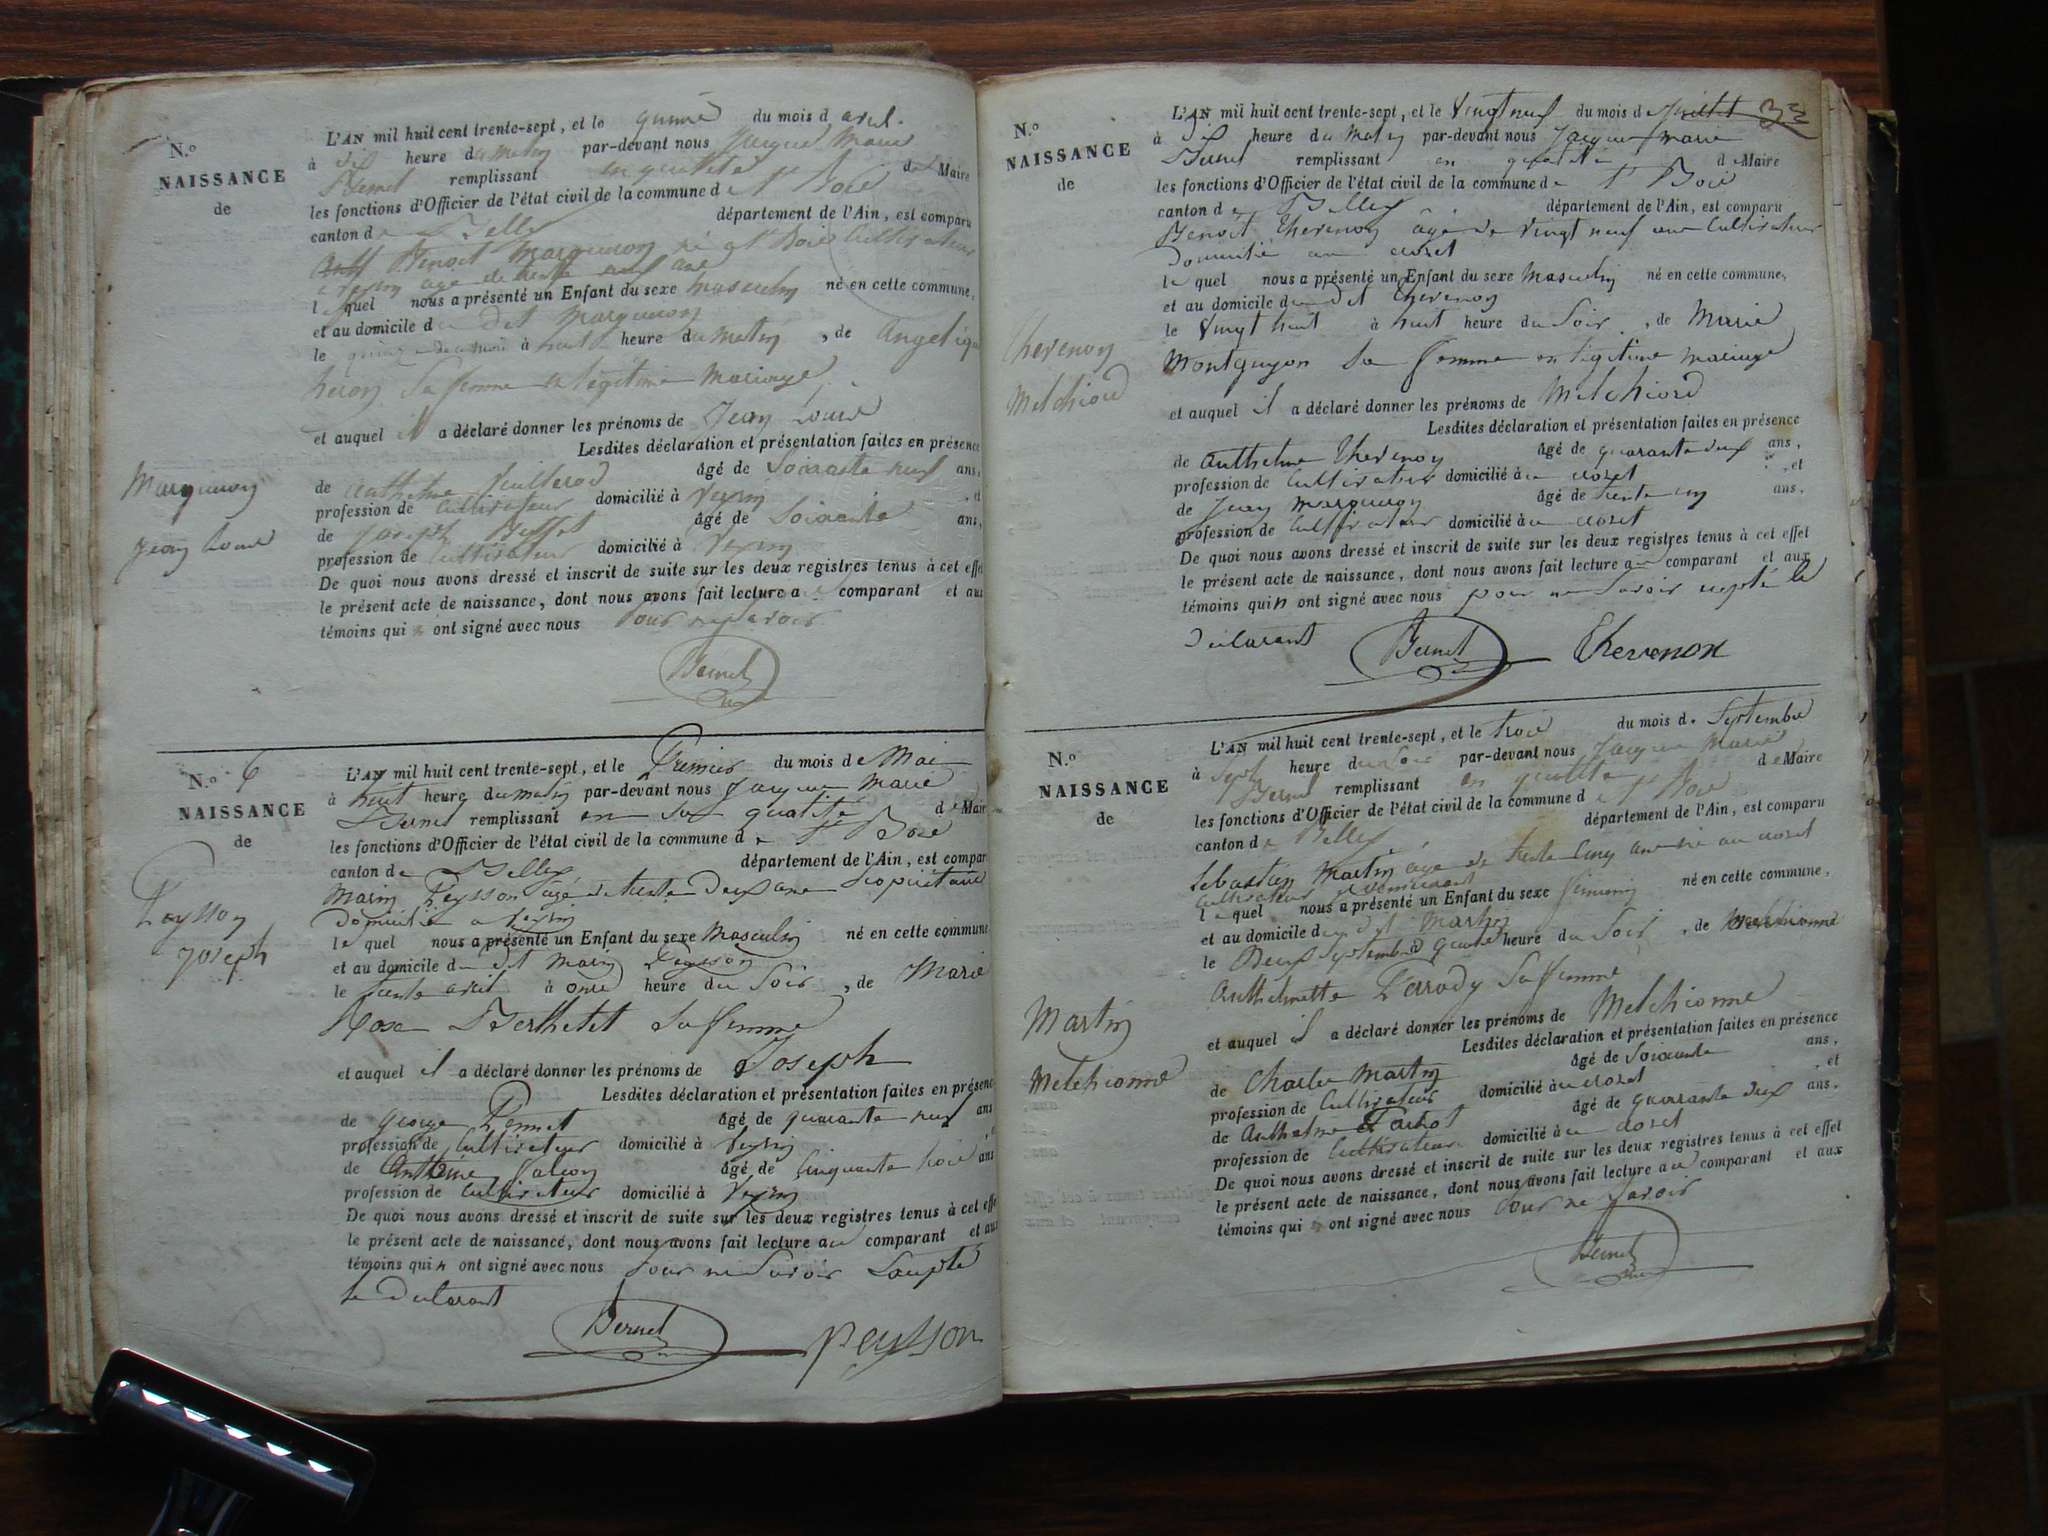 N.º
NAISSANCE
de
Margueron
Jean Louis
L'AN mil huit cent trente-sept, et le quinze du mois d avril
à dix heure du matin par-devant nous Jacque Marie
Bernet remplissant en qualité d e Maire
les fonctions d'Officier de l'état civil de la commune d e St Boie
canton d e Belley département de l'Ain, est comparu
Benoit Margueron né a St Boie Cultivateur
a Veyrin age de trente neuf ans
l e quel nous a présenté un Enfant du sexe masculin né en cette commune,
et au domicile d u dit Margueron
le quinze du mois à huit heure du matin, de Angelique
heron Sa femme en légitime Mariage
et auquel il a déclaré donner les prénoms de Jean Louis
Lesdites déclaration et présentation faites en présence
de Anthelme Vuillerod âgé de Soixante neuf ans,
profession de Cultivateur domicilié à Veyrin, et
de Joseph Buffet âgé de Soixante ans,
profession de Cultivateur domicilié à Veyrin
De quoi nous avons dressé et inscrit de suite sur les deux registres tenus à cet effet
le présent acte de naissance, dont nous avons fait lecture a comparant et aux
témoins qui n ont signé avec nous Pour ne Savoir
Bernet
N.º 6
NAISSANCE
de
Peysson
Joseph
L'AN mil huit cent trente-sept, et le Premier du mois d e Mai
à huit heure du matin par-devant nous Jacque Marie
Bernet remplissant en Sa qualité d e Maire
les fonctions d'Officier de l'état civil de la commune d e St Boie
canton d e Belley département de l'Ain, est comparu
Marin Peysson agé de trente Deux ans Propriétaire
Domicilié a Veyrin
l e quel nous a présenté un Enfant du sexe Masculin né en cette commune
et au domicile d u dit Marin Peysson
le trente avril à onze heure du Soir, de Marie
Rose Berthelet Sa femme
et auquel il a déclaré donner les prénoms de Joseph
Lesdites déclaration et présentation faites en présence
de George Pernet âgé de quarante neuf ans
profession de Cultivateur domicilié à Veyrin
de Anthelme Falcon âgé de Cinquante trois ans
profession de Cultivateur domicilié à Veyrin
De quoi nous avons dressé et inscrit de suite sur les deux registres tenus à cet effet
le présent acte de naissance, dont nous avons fait lecture au comparant et aux
témoins qui n ont signé avec nous Pour ne Savoir Excepté
le declarant
Bernet Peysson
33
N.º
NAISSANCE
de
Thevenon
Melchiord
L'AN mil huit cent trente-sept, et le Vingt neuf du mois d e Juillet
à dix heure du Matin par-devant nous Jacque Marie
Bernet remplissant en qualité d e Maire
les fonctions d'Officier de l'état civil de la commune d e St Boie
canton d e Belley département de l'Ain, est comparu
Benoit Thevenon âgé de Vingt neuf ans Cultivateur
Domicilié au crozet
le quel nous a présenté un Enfant du sexe Masculin né en cette commune,
et au domicile d u dit Thevenon
le Vingt huit à huit heure du Soir, de Marie
Montguyon Sa femme en légitime Mariage
et auquel il a déclaré donner les prénoms de Melchiord
Lesdites déclaration et présentation faites en présence
de Anthelme Thevenon âgé de quarante deux ans,
profession de Cultivateur domicilié à u crozet, et
de Jean Marguron âgé de trente cinq ans,
profession de Cultivateur domicilié à u crozet
De quoi nous avons dressé et inscrit de suite sur les deux registres tenus à cet effet
le présent acte de naissance, dont nous avons fait lecture au comparant et aux
témoins qui n ont signé avec nous pour ne Savoir excepté le
Declarant Bernet Thevenon
N.º
NAISSANCE
de
Martin
Melchionne
L'AN mil huit cent trente-sept, et le trois du mois d e Septembre
à Sept heure du Soir par-devant nous Jacque Marie
Bernet remplissant en qualité d e Maire
les fonctions d'Officier de l'état civil de la commune d e St Boie
canton d e Belley département de l'Ain, est comparu
Sebastien Martin âgé de trente Cinq ans né au crozet
Cultivateur y demeurant
l e quel nous a présenté un Enfant du sexe feminin né en cette commune,
et au domicile d u dit Martin
le Deux Septembre à quatre heure du Soir, de Melchionne
Anthelmette Parody Sa femme
et auquel il a déclaré donner les prénoms de Melchionne
Lesdites déclaration et présentation faites en présence
de Charles Martin âgé de Soixante ans,
profession de Cultivateur domicilié à u crozet, et
de Anthelme Pachot âgé de quarante deux ans,
profession de Cultivateur domicilié à u crozet
De quoi nous avons dressé et inscrit de suite sur les deux registres tenus à cet effet
le présent acte de naissance, dont nous avons fait lecture au comparant et aux
témoins qui n ont signé avec nous Pour ne Savoir
Bernet